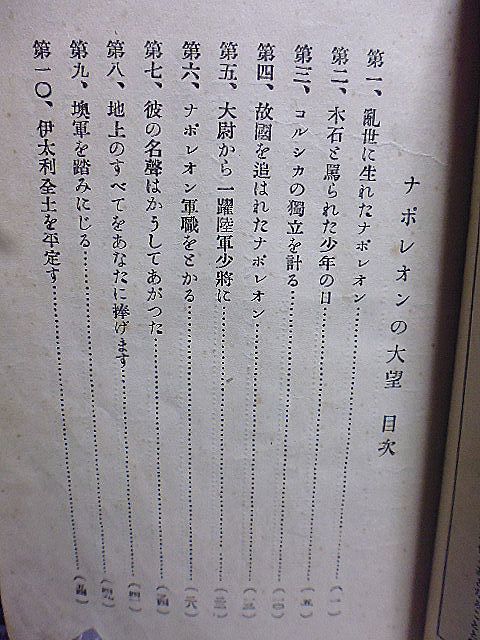 ナポレオンの大望 目次
第一、亂世に生れたナポレオン……(一)
第二、木石と罵られた少年の日……(五)
第三、コルシカの獨立を計る……(一〇)
第四、故國を追はれたナポレオン……
第五、大尉から一躍陸軍少將に……
第六、ナポレオン軍職をとかる……(二八)
第七、彼の名聲はかうしてあがつた……
第八、地上のすべてをあなたに捧げます……
第九、墺軍を踏みにじる……(四九)
第一〇、伊太利全土を平定す……